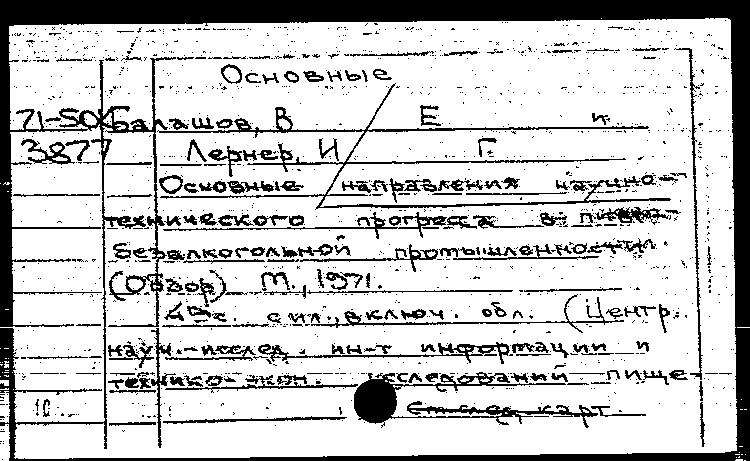 Основные
71-5ОХ Балашов, В Е и
3877 Лернер, И Г.
Основные направления научно-
технического прогресса в пиво-
безалкогольной промышленности.
(Обзор) М., 1971.
с ил., включ. обл. (Центр.
науч.-исслед. ин-т информации и
технико-экон. исследований пище-
10 См. след. карт.